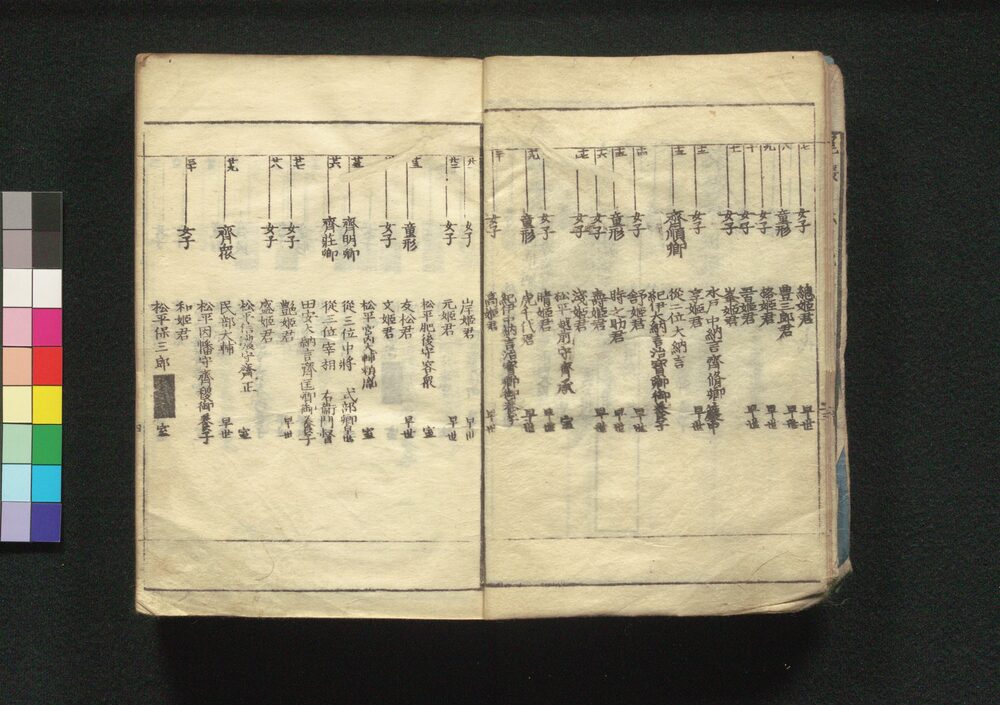 七 女子 總姫君 早世
八 童形 豊三郎君 早世
九 女子 格姫君 早世
十 女子 吾姫君 早世
十一 女子 峯姫君
水戸中納言齊脩卿簾中
十二 女子 享姫君 早世
十三 齊順卿 從二位大納言
紀伊大納言治寶卿御養子
十四 女子 舒姫君 早世
十五 童形 時之助君 早世
十六 女子 壽姫君 早世
十七 女子 淺姫君
松平越前守齊承 室
女子 晴姫君 早世
十九 童形 虎千代君 早世
紀伊中納言治寶卿御養子
二十 女子 高姫君 早世
廿一 女子 岸姫君 早世
廿二 女子 元姫君
松平肥後守容衆 室
童形 友松君 早世
女子 文姫君
松平宮内大輔頼胤 室
廿五 齊明卿 從三位中將 式部卿早世
廿六 齊莊卿 從三位宰相 右衛門督
田安大納言齊匡卿御養子
廿七 女子 艶姫君 早世
廿八 女子 盛姫君
松平信濃守齊正 室
廿九 齊衆 民部大輔 早世
松平因幡守齊稷御養子
三十 女子 和姫君
松平保三郎 室